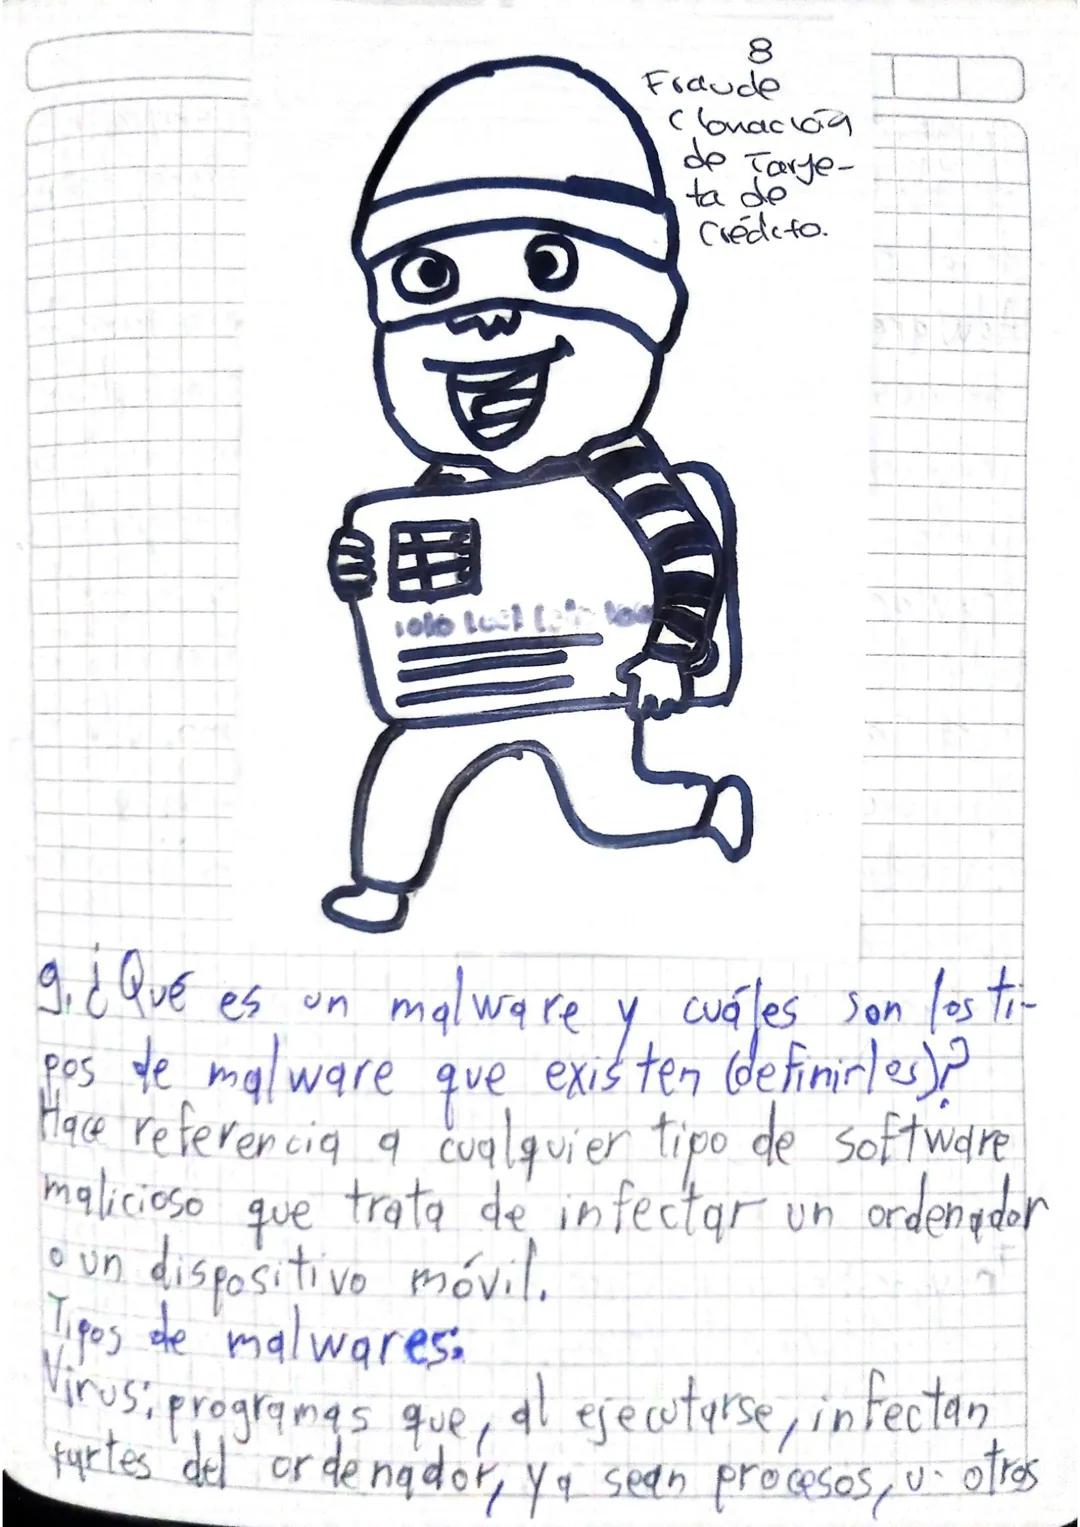 8
Fraude
Clonación
de Tarje-
ta de
Crédito.
9. ¿Qué es un malware y cuáles son los ti-
pos de malware que existen (definirlos)?
Hace referencia a cualquier tipo de software
malicioso que trata de infectar un ordenador
o un dispositivo móvil.
Tipos de malwares:
Virus: programas que, al ejecutarse, infectan
partes del ordenador, ya sean procesos, u otros